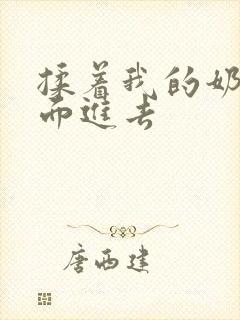 揉着我的奶
而进去
唐西建